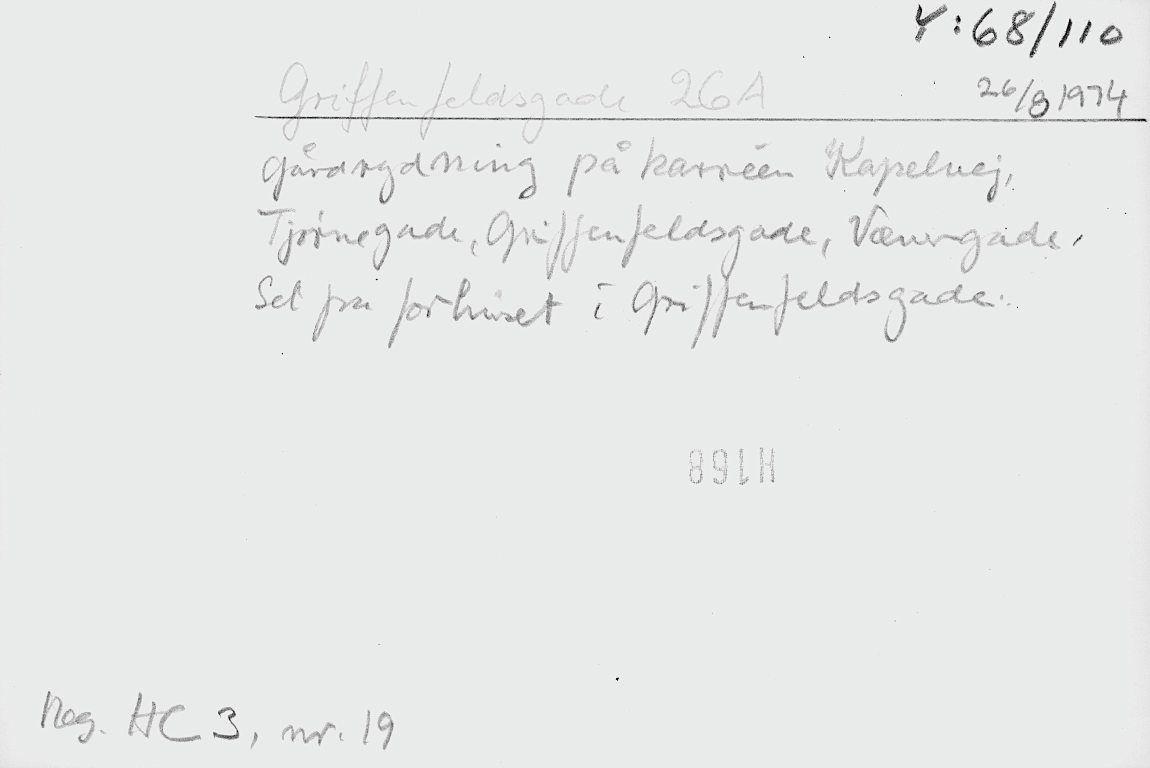 Y:68/110
Griffenfeldsgade 26A
26/8 1974
gårdrydning på karréen Kapelvej,
Tjørnegade, Griffenfeldsgade, Værnergade,
Set fra forhuset i Griffenfeldsgade.
H168
Neg. HC 3, nr. 19